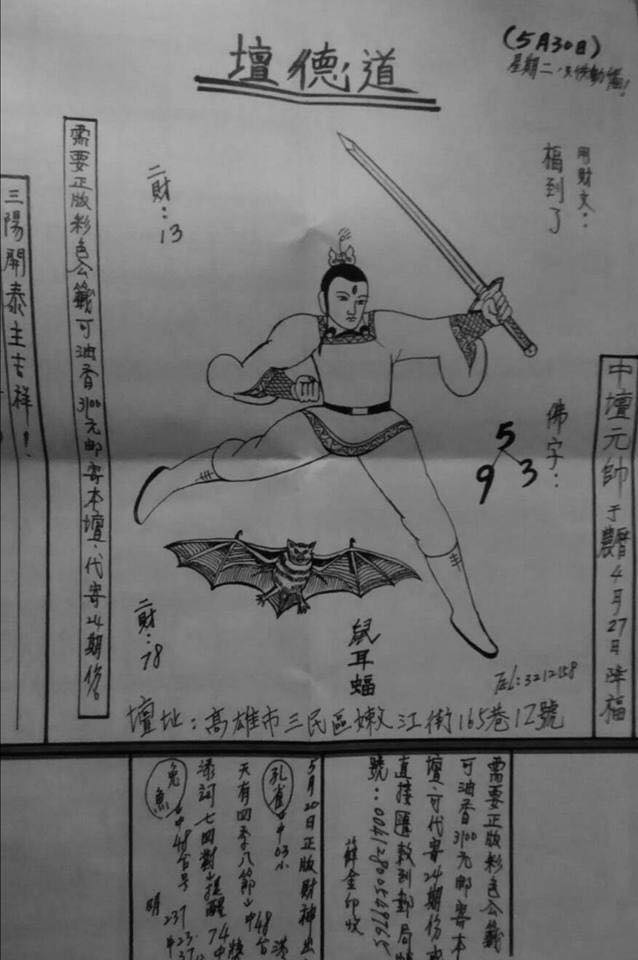 道德壇
(5月30日)
用財文:
福到了
二財:13
需要正版彩色公籤可油香3100元郵寄本壇、代寄24期份。
三陽開泰主吉祥!
中壇元帥于農曆4月27日降福
佛字:
5
9 3
二財:78
鼠耳蝠
Tel:3212158
壇址:高雄市三民區嫩江街165巷12號
需要正版彩色公籤
可油香3100元郵寄本
壇、可代寄24期份
直接匯款到郵局
號:
薛金印收
5月20日正版財神
孔雀 03
天有四季八節 48
七四對 提醒 74
兔魚 48台号
237